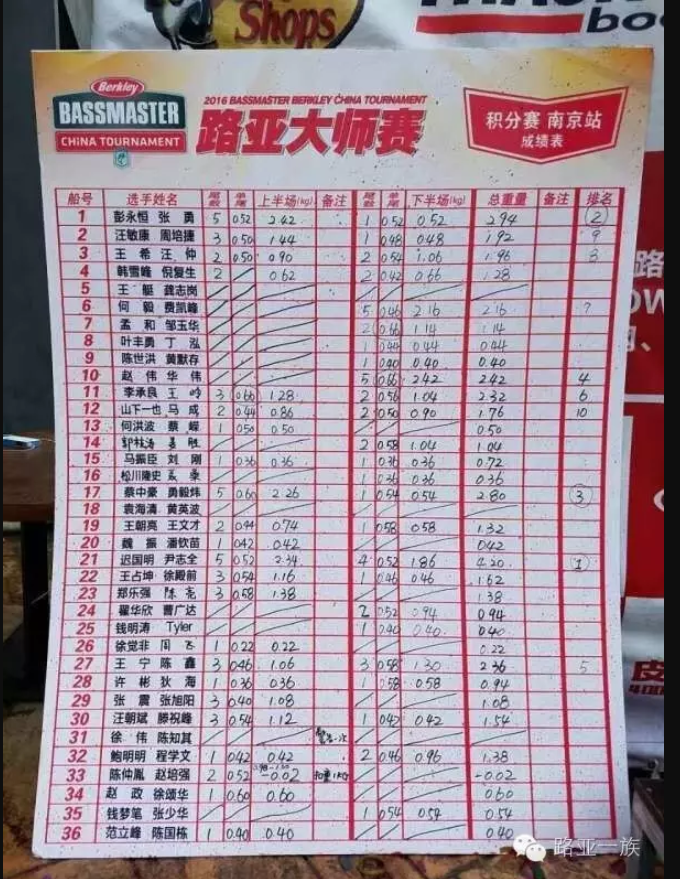 Shops
boo
Berkley
BASSMASTER
CHINA TOURNAMENT
2016 BASSMASTER BERKLEY CHINA TOURNAMENT
路亚大师赛
积分赛 南京站
成绩表
船号 选手姓名 尾数 单尾 上半场(kg) 备注 尾数 单尾 下半场(kg) 总重量 备注 排名
1 彭永恒 张 勇 5 0.52 2.42 1 0.52 0.52 2.94 2
2 汪敏康 周培捷 3 0.50 1.44 1 0.48 0.48 1.92 9
3 王 希 汪 仲 2 0.50 0.90 2 0.54 1.06 1.96 8
4 韩雪峰 倪复生 2 0.62 2 0.42 0.66 1.28
5 王 艇 龚志岗
6 何 毅 费凯峰 5 0.46 2.16 2.16 7
7 孟 和 邹玉华 2 0.66 1.14 1.14
8 叶丰勇 丁 泓 1 0.44 0.44 0.44
9 陈世洪 黄默存 1 0.40 0.40 0.40
10 赵 伟 华 伟 5 0.66 2.42 2.42 4
11 李承良 王 吟 3 0.66 1.28 2 0.56 1.04 2.32 6
12 山下一也 马 成 2 0.44 0.86 2 0.50 0.90 1.76 10
13 何洪波 蔡 嵘 1 0.50 0.50 0.50
14 郭桂涛 姜 胜 2 0.58 1.04 1.04
15 马振臣 刘 刚 1 0.36 0.36 1 0.36 0.36 0.72
16 松川隆史 1 0.36 0.36 0.36
17 蔡中豪 勇毅炜 5 0.60 2.26 1 0.54 0.54 2.80 3
18 袁海清 黄英波
19 王朝亮 王文才 2 0.44 0.74 1 0.58 0.58 1.32
20 魏 振 潘钦苗 1 0.42 0.42 0.42
21 迟国明 尹志全 5 0.52 2.34 4 0.52 1.86 4.20 1
22 王占坤 徐殿前 3 0.54 1.16 1 0.46 0.46 1.62
23 郑乐强 陈 亮 3 0.58 1.38 1.38
24 翟华欣 曹广达 2 0.52 0.94 0.94
25 钱明涛 Tyler 1 0.40 0.40 0.40
26 徐觉非 周 飞 1 0.22 0.22 0.22
27 王 宁 陈 鑫 3 0.46 1.06 3 0.58 1.30 2.36 5
28 许 彬 狄 海 1 0.36 0.36 1 0.58 0.58 0.94
29 张 震 张旭阳 3 0.40 1.08 1.08
30 汪朝斌 滕祝峰 3 0.54 1.12 1 0.42 0.42 1.54
31 徐 伟 陈知其 警告一次
32 鲍明明 程学文 1 0.42 0.42 2 0.46 0.96 1.38
33 陈仲胤 赵培强 2 0.52 -0.02 扣重1kg -0.02
34 赵 政 徐颂华 1 0.60 0.60 0.60
35 钱梦笔 张少华 1 0.54 0.54 0.54
36 范立峰 陈国栋 1 0.40 0.40 0.40
路亚一族